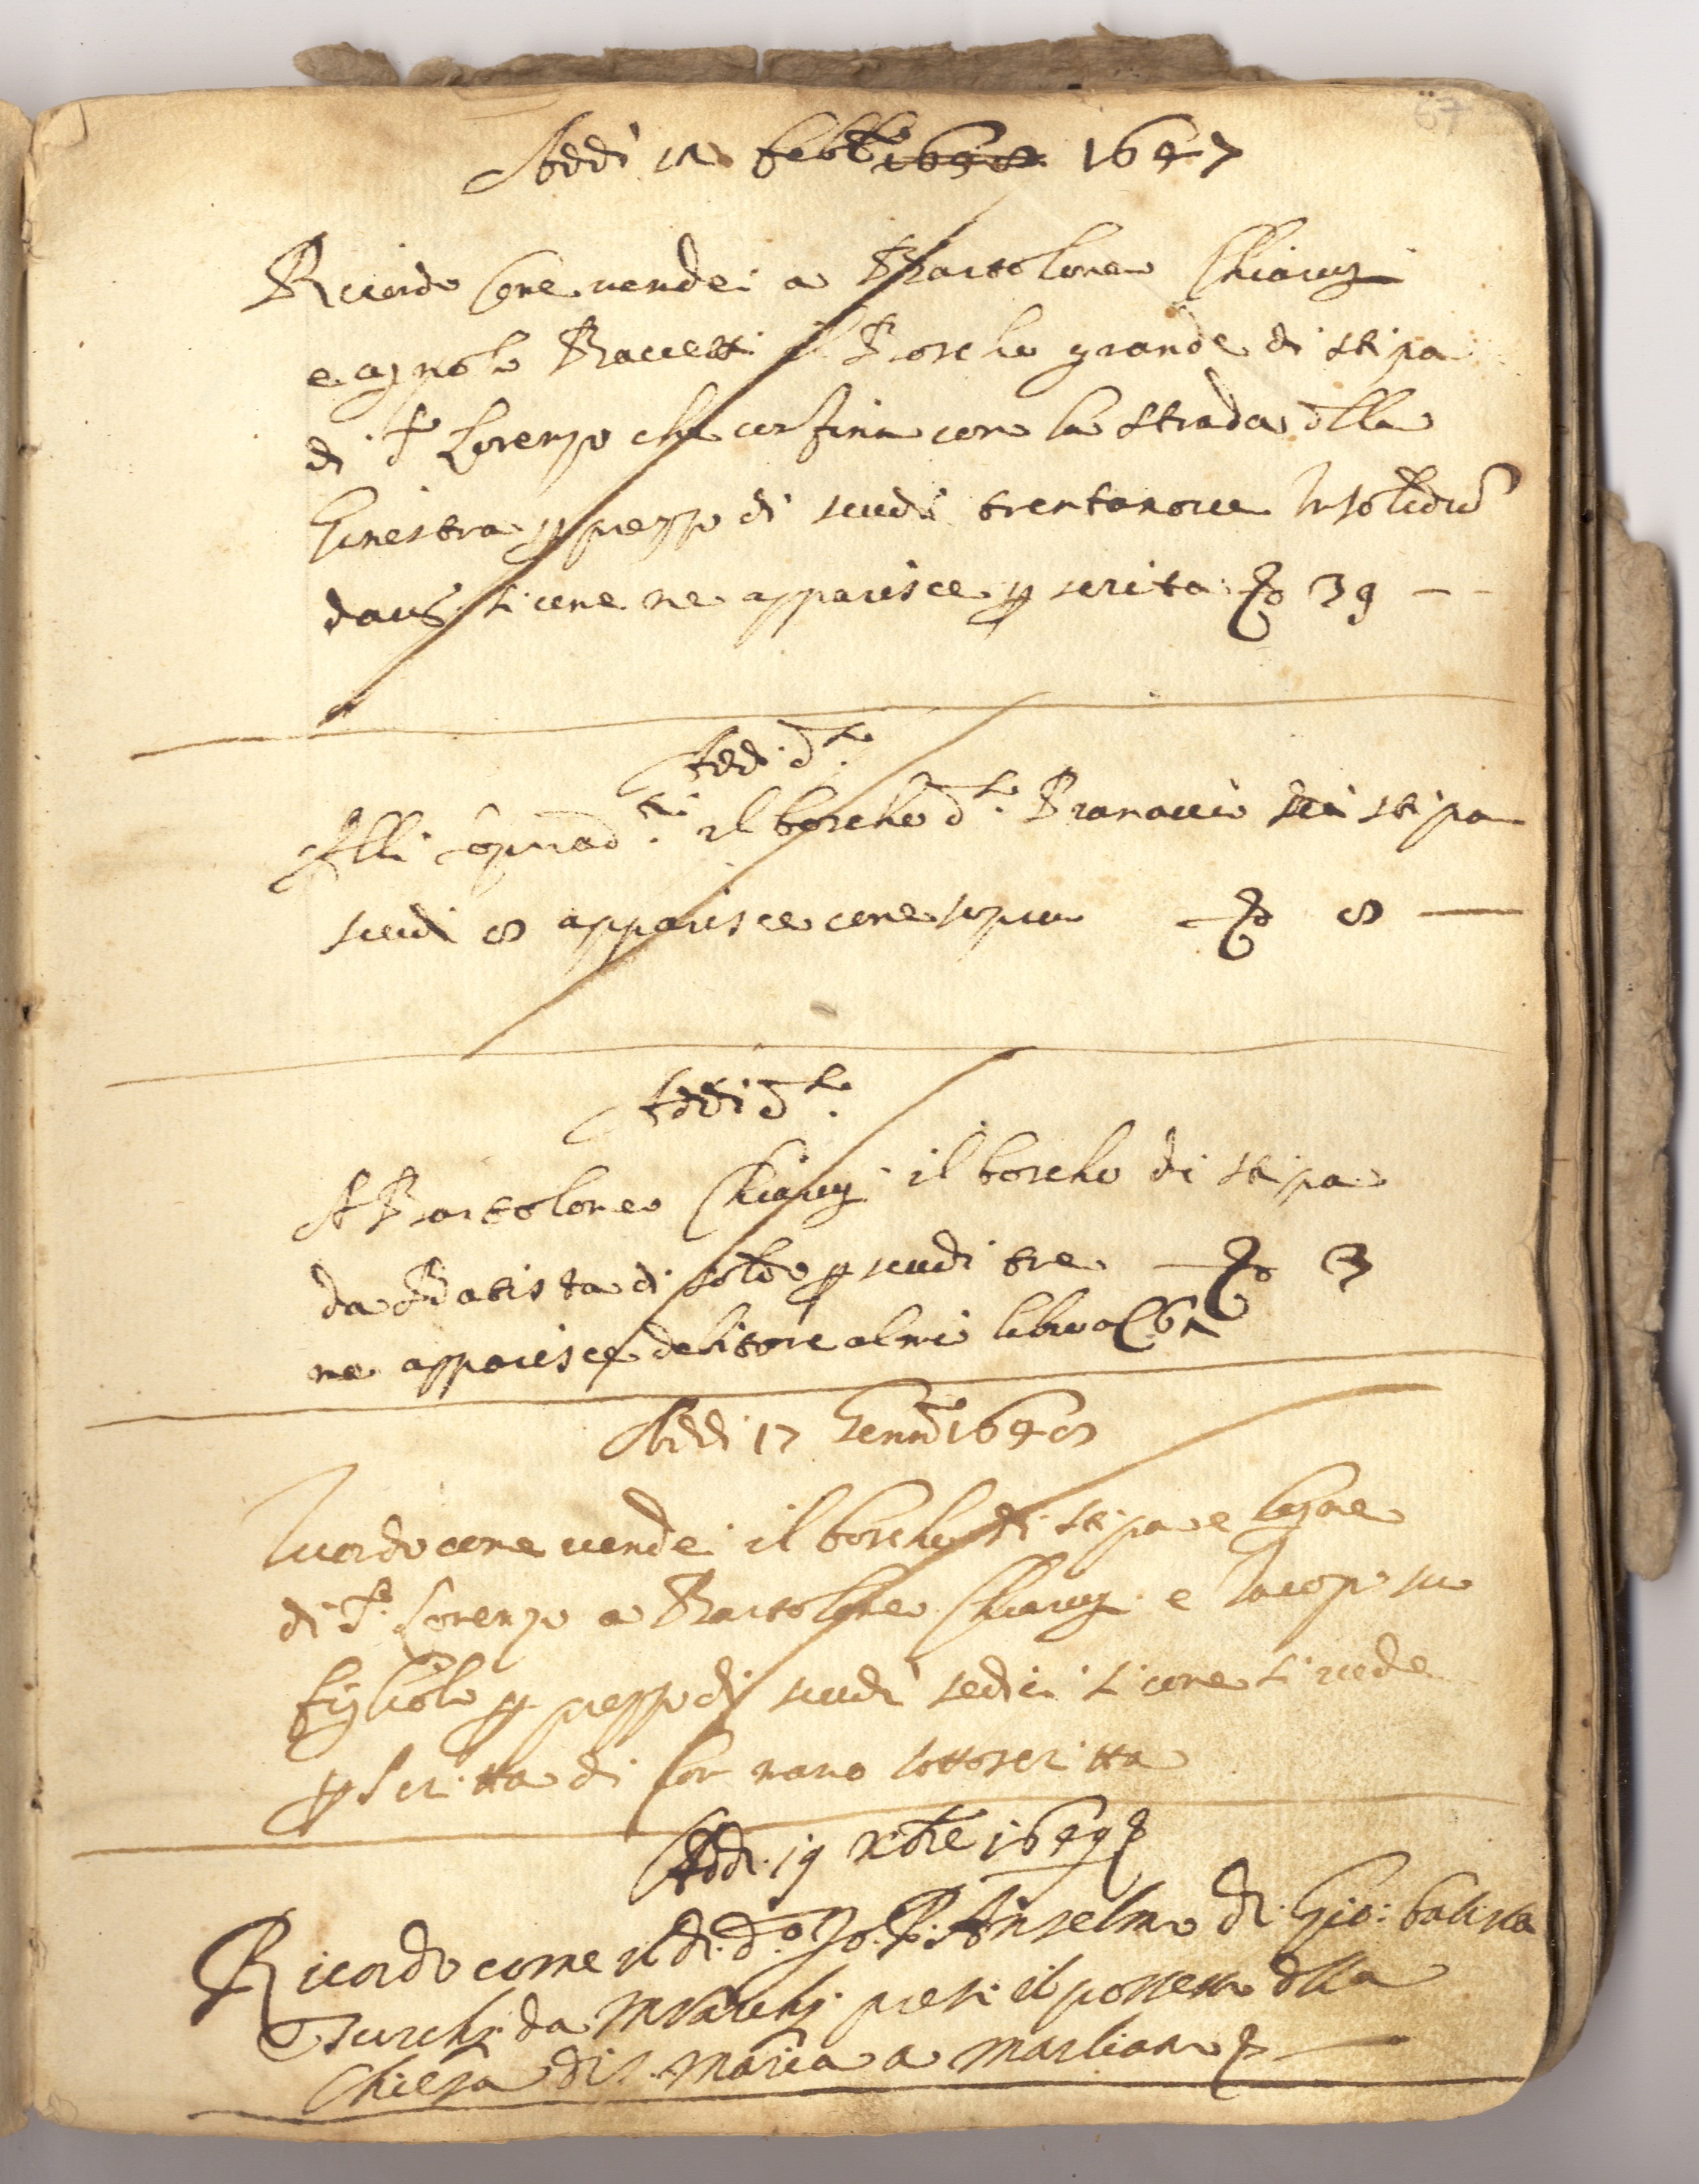 67
Addi 12 febb.o 1648 1647
Ricordo Come vendei a Bartolomeo Chiarugi
e Agnolo Bacetti il Boscho grande di stipa
di S.to Lorenzo che confina con la strada dlla
Ginestra p prezzo di scudi trentanove Insolidū
si come ne apparisce p scrita 39 — -
Addi d.to
Alli soprad.ti il boscho d.to stipa
scudi 8 apparisce come sopra 8 —
Addi d.to
A Bartolomeo Chiarugi il boscho di stipa
da Batista di sotto p scudi tre — 3
ne apparisce debitore al mio libro a 62
Addi 17 Genn.o 1648
Ricordo come vendei il boscho di stipa e legne
di S.to Lorenzo a Bartolomeo Chiarugi e Iacopo su
figliolo p prezzo di scudi sedici si come si vede
p Scritta di lor mano sottoscritta
Addi 19 Xbre 1649
Ricordo come il di d.o Io P. Anselmo di Gio: batista
Turchi da presi il possesso dlla
Chiesa di S. Maria a Marliano —